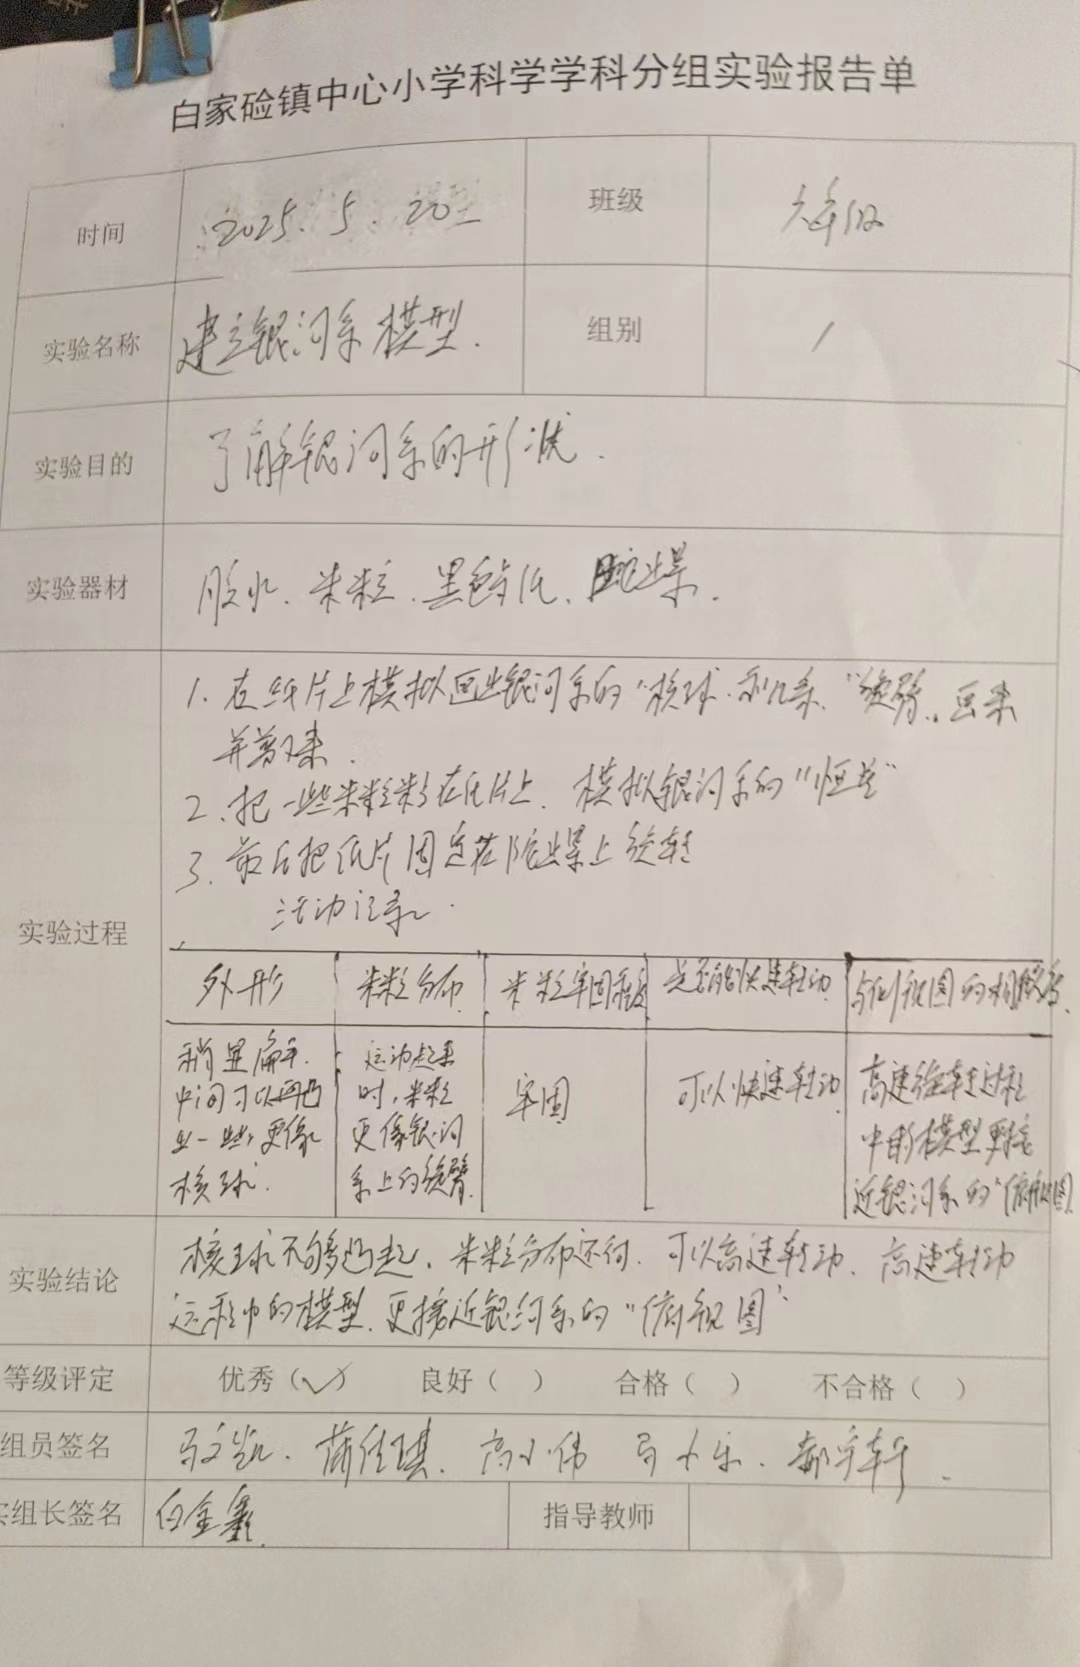 白家硷镇中心小学科学学科分组实验报告单
时间 2025.5.20 班级 六年级
实验名称 建立银河系模型. 组别 1
实验目的 了解银河系的形状.
实验器材 胶水、米粒、黑色卡纸、陀螺.
实验过程
1. 在纸片上模拟画出银河系的"核球、和几条"旋臂",画来
并剪下来.
2.把一些米粒粘在纸片上, 模拟银河系的"恒星"
3. 最后把纸片固定在陀螺上旋转
活动记录.
外形 米粒分布 米粒牢固程度 是否能快速转动 与俯视图的相似度
稍显扁平. 中间可以再凸出一些,更像核球.
运动起来时,米粒更像银河系上的旋臂.
牢固
可以快速转动
高速旋转过程中的模型更接近银河系的"俯视图
实验结论 核球不够凸起、米粒分布还行. 可以高速转动、高速转动
过程中的模型.更接近银河系的"俯视图"
等级评定 优秀(√) 良好( ) 合格( ) 不合格( )
组员签名 马文凯、蒲佳琪、高小伟 马小乐、郝宇轩.
组长签名 白金鑫. 指导教师